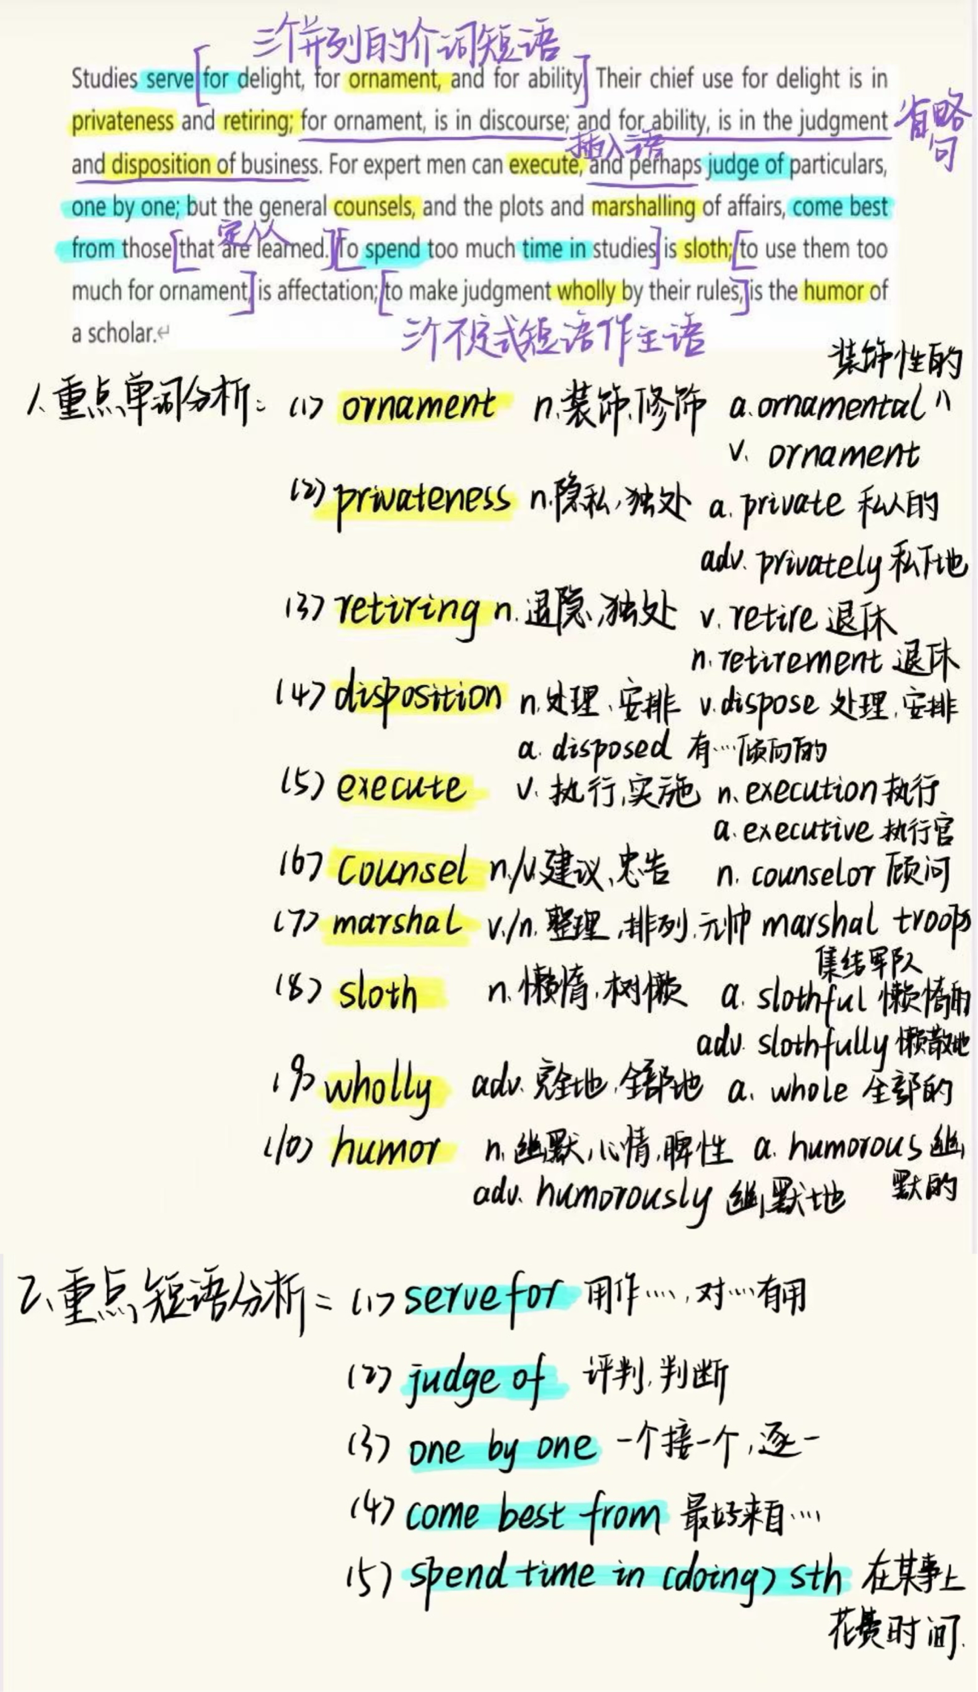 三个并列的介词短语
Studies serve for delight, for ornament, and for ability. Their chief use for delight is in
privateness and retiring; for ornament, is in discourse; and for ability, is in the judgment
省略句
插入语
and disposition of business. For expert men can execute, and perhaps judge of particulars,
one by one; but the general counsels, and the plots and marshalling of affairs, come best
定从
from those that are learned. To spend too much time in studies is sloth; to use them too
much for ornament, is affectation; to make judgment wholly by their rules, is the humor of
a scholar.↵
三个不定式短语作主语
装饰性的
1、重点单词分析: (1) ornament n.装饰,修饰 a.ornamental
v. ornament
(2) privateness n.隐私,独处 a. private 私人的
adv. privately 私下地
(3) retiring n.退隐,独处 v. retire 退休
n. retirement 退休
(4) disposition n.处理、安排 v. dispose 处理,安排
a. disposed 有…倾向的
(5) execute v. 执行,实施 n. execution 执行
a. executive 执行官
(6) counsel n./v.建议、忠告 n. counselor 顾问
(7) marshal v./n. 整理,排列,元帅 marshal troops
集结军队
(8) sloth n.懒惰,树懒 a. slothful 懒惰的
adv. slothfully 懒散地
(9) wholly adv. 完全地,全部地 a. whole 全部的
(10) humor n.幽默,心情,脾性 a. humorous 幽
默的
adv. humorously 幽默地
2、重点短语分析: (1) serve for 用作…,对…有用
(2) judge of 评判,判断
(3) one by one 一个接一个,逐一
(4) come best from 最好来自…
(5) spend time in (doing) sth 在某事上
花费时间.